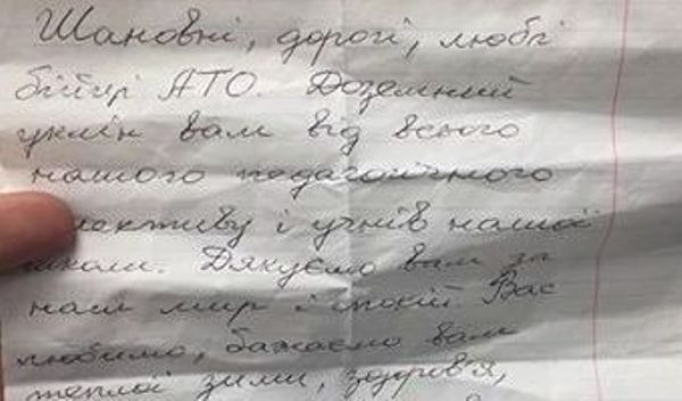 Шановні, дорогі, любі
бійці АТО. Доземний
уклін вам від всього
нашого педагогічного
лективу і учнів нашої
школи. Дякуємо вам за
наш мир і спокій. Вас
любимо, бажаємо вам
теплої зими, здоров'я,